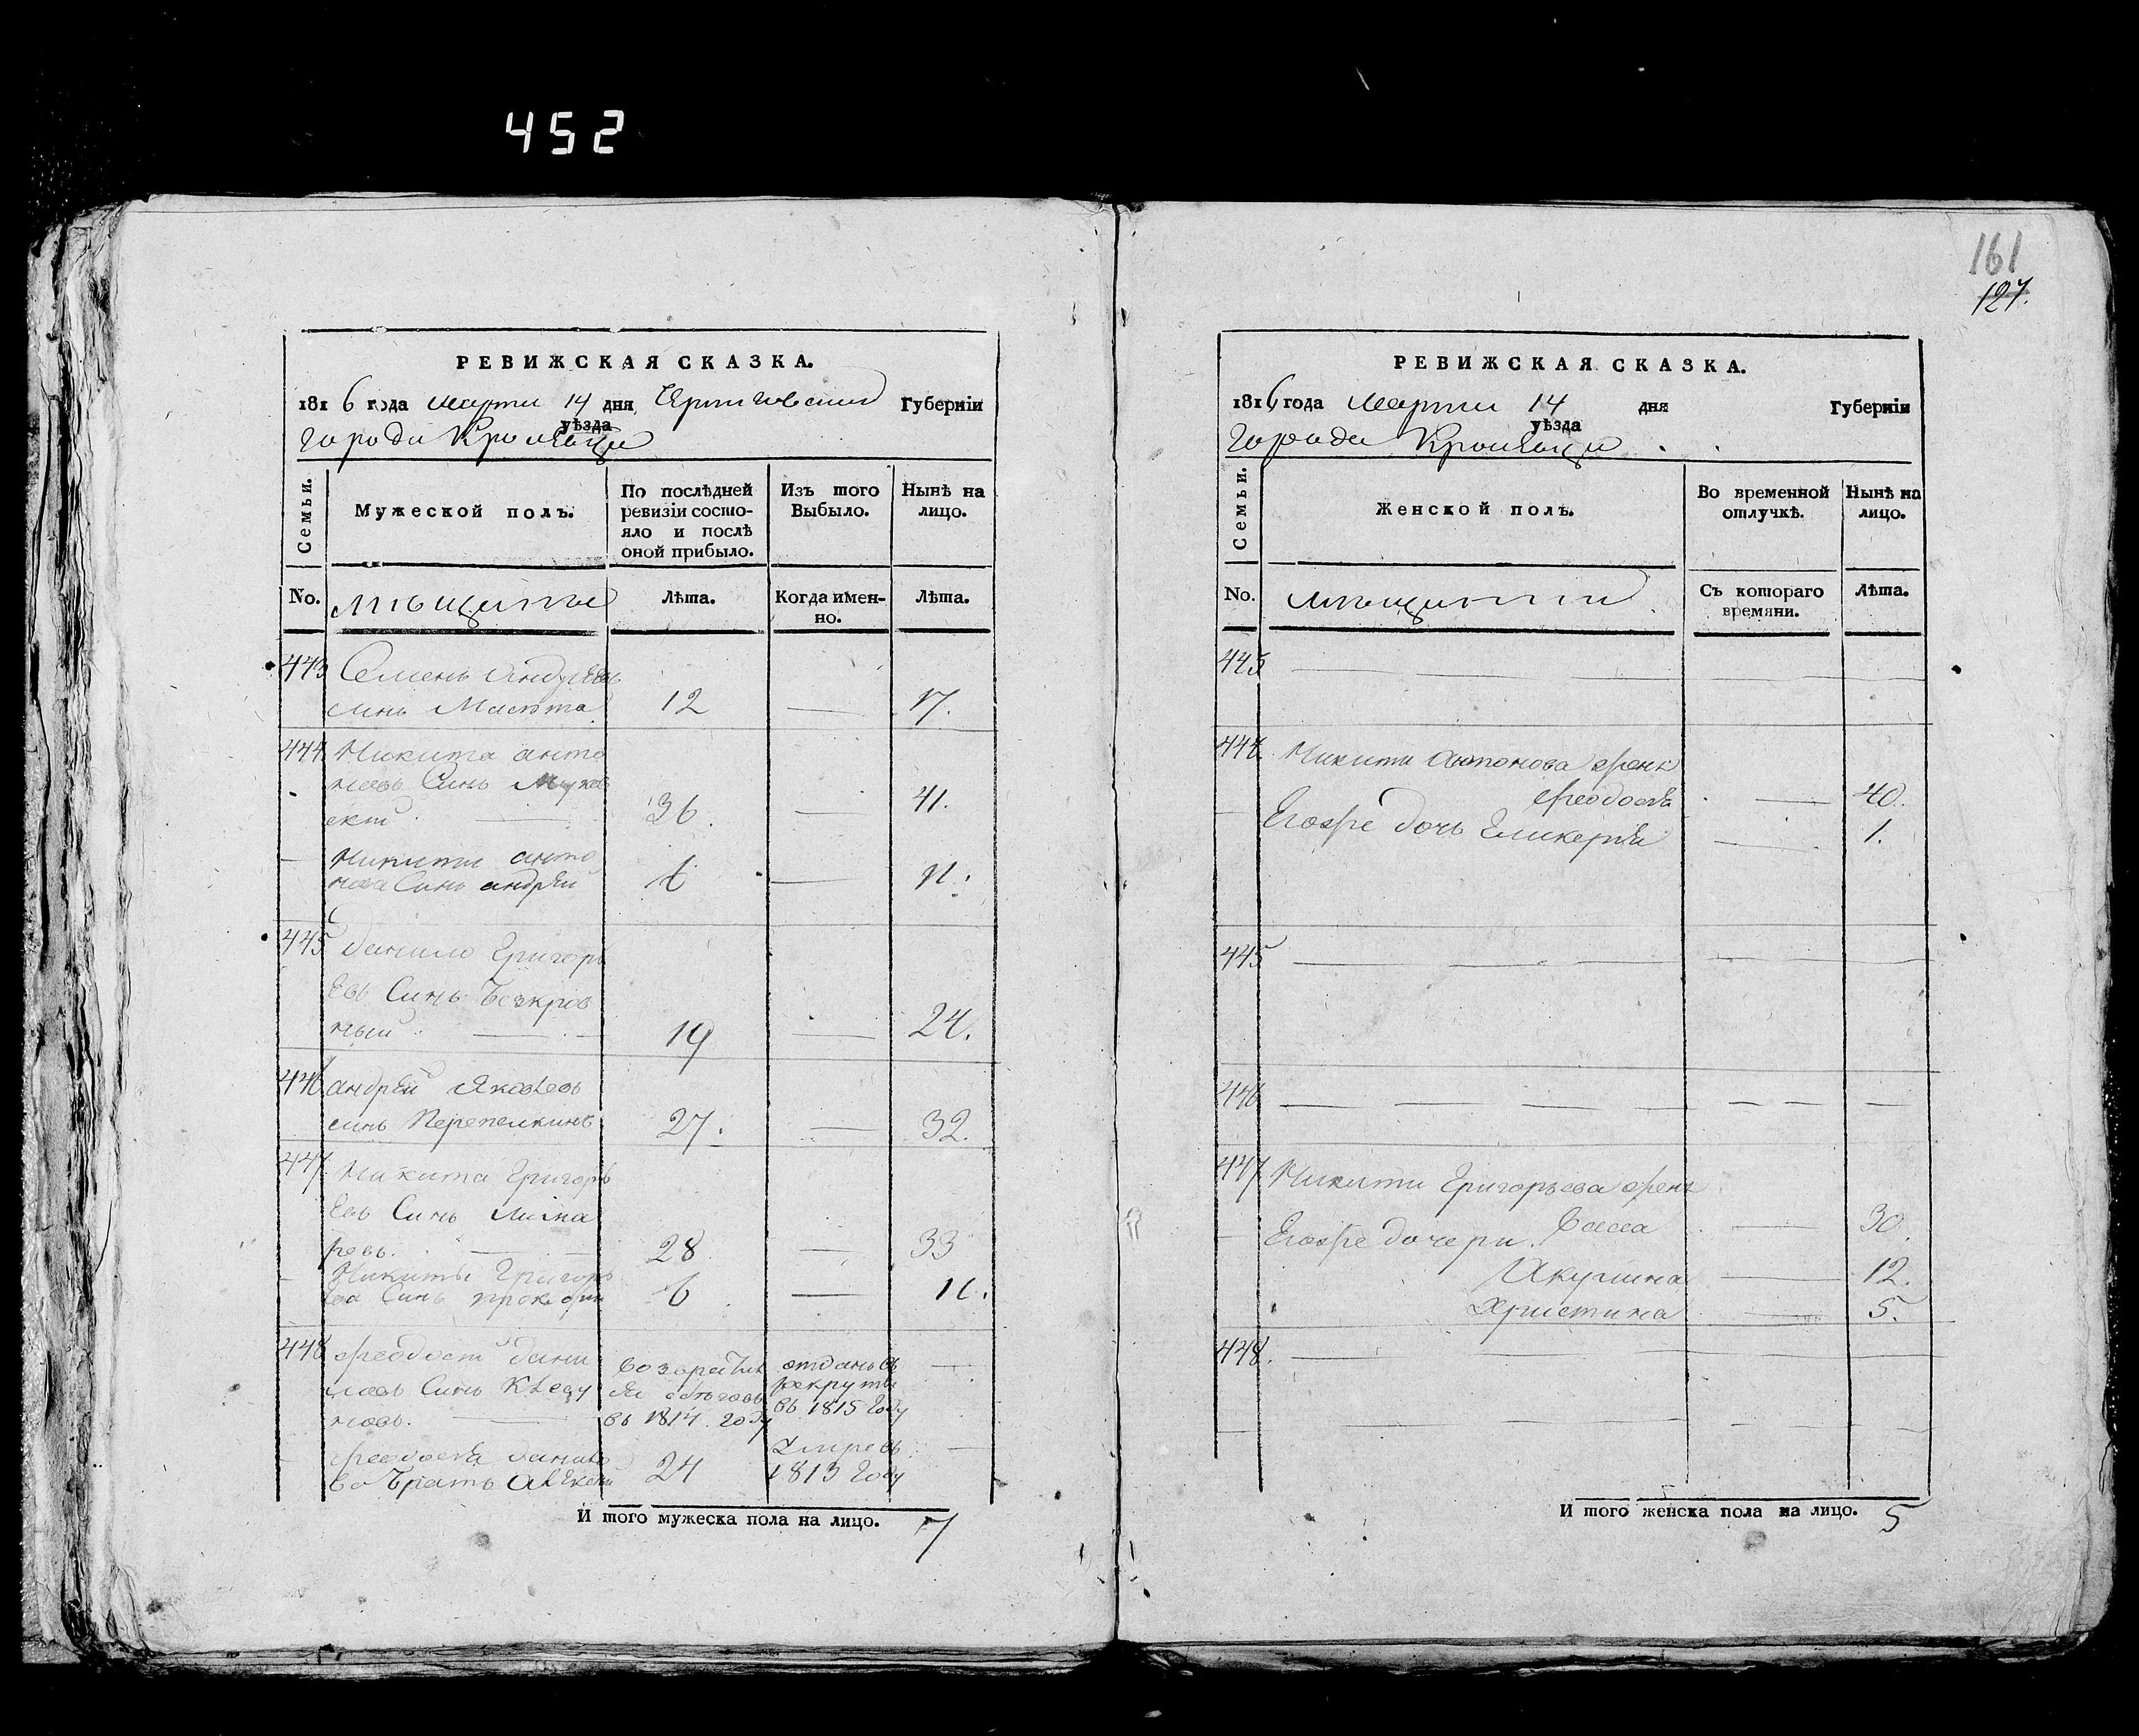 452
РЕВИЖСКАЯ СКАЗКА.
1816 года марта 14 дня Черниговской Губерніи
уѣзда
города Кролевца
Семьи.
Мужеской полъ.
По послѣдней ревизіи состо-
яло и послѣ
оной прибыло.
Изъ того
Выбыло.
Нынѣ на
лицо.
No.
мѣщане
Лѣта.
Когда имен-
но.
Лѣта.
443 Семенъ
синъ 12 — 17.
444 Никита анто
новъ Синъ
36. — 41.
Никити анто
нова Синъ андрѣй 6 — 11.
445 данило Григорь
евъ Синъ Безкров
ный — 19 — 24.
446 андрѣй Яковлевъ
синъ Перепелкинъ 27. — 32.
447 Никита Григорь
евъ Синъ
28 — 33
Никиты Григорь
ева Синъ 6 — 11.
448 феодосій дани
ловъ Синъ
новъ. —
возвратил
ся
въ 1814 году
отданъ въ
рекруты
въ 1815 Году
феодосѣя данило
ва Братъ Алексѣй 24
Умре въ
1813 Году —
И того мужеска пола на лицо. 7
161
127.
РЕВИЖСКАЯ СКАЗКА.
1816 года Марта 14 дня Губерніи
уѣзда
города Кролевца
Семьи.
Женской полъ.
Во временной
отлучкѣ.
Нынѣ на
лицо.
No.
мѣщане
Съ котораго
времяни.
Лѣта.
443
444 Никити антонова жена
феодосѣя — 40.
Егоже дочь Гликерѣя — 1.
445
446
447 Никити Григорьева жена
Васса — 30.
Егоже дочери.
Акулина — 12.
Христина — 5.
448.
И того женска пола на лицо. 5